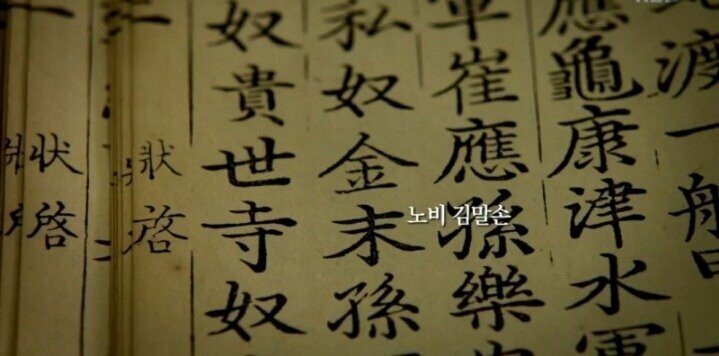 渡一船
應龜康津水軍
軍崔應孫樂
私奴金末孫
奴貴世寺奴
狀啓
狀啓
노비 김말손